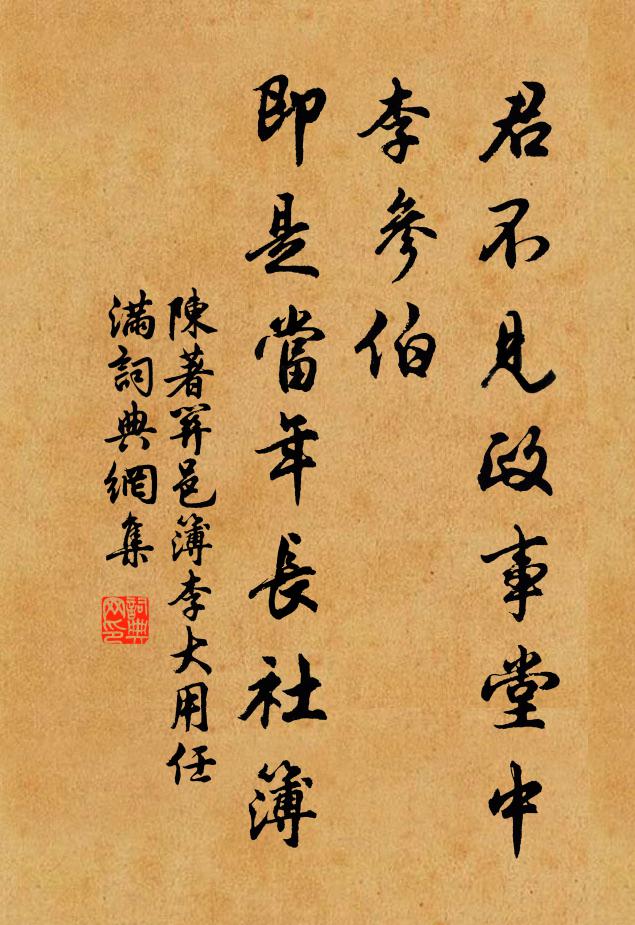 君不見政事堂中
李參伯
即是當年長社簿
陳著邑簿李大用任
滿詞典網集
詞典
网印